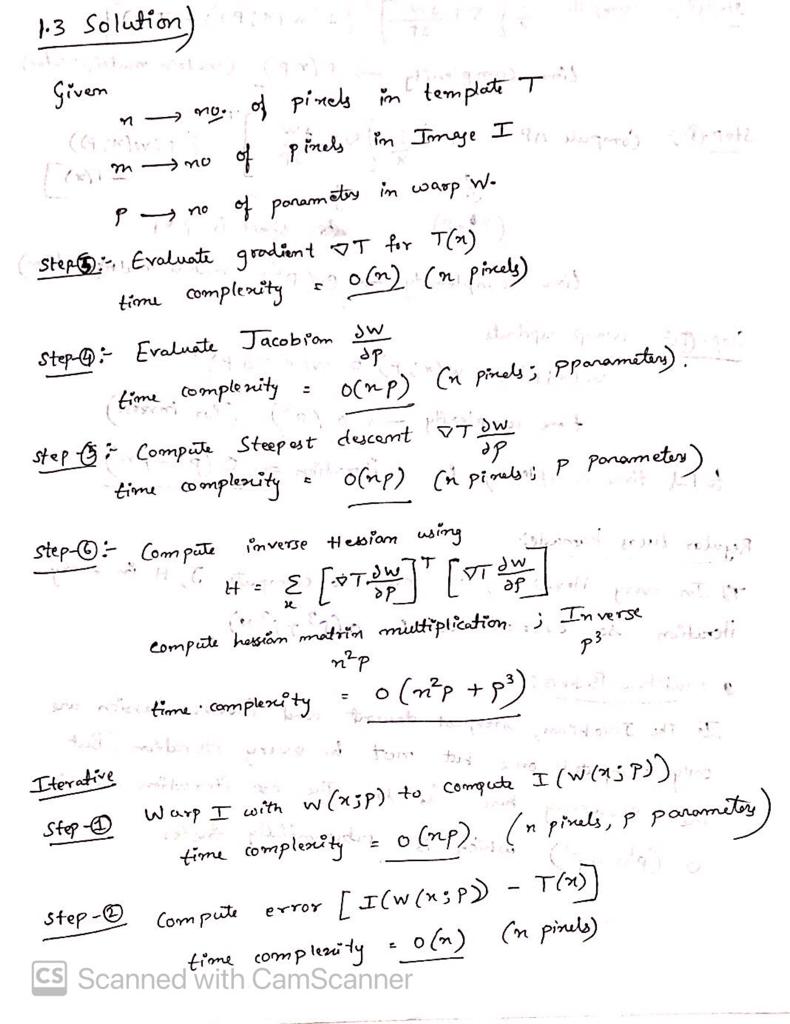 1.3 Solution)
Given
n → no. of pixels in template T
m → no of pixels in Image I
p → no of parameters in warp W.
Step-③:- Evaluate gradient ∇T for T(x)
time complexity = O(n) (n pixels)
Step-④:- Evaluate Jacobian ∂W/∂p
time complexity = O(np) (n pixels; p parameters).
Step-⑤:- Compute Steepest descent ∇T ∂W/∂p
time complexity = O(np) (n pixels; p parameters).
Step-⑥:- Compute inverse Hessian using
H = Σ_x [∇T ∂W/∂p]^T [∇T ∂W/∂p]
compute hessian matrix multiplication ; Inverse
n²p p³
time complexity = O(n²p + p³)
Iterative
Step-① Warp I with W(x;p) to compute I(W(x;P))
time complexity = O(np). (n pixels, p parameters)
Step-② Compute error [I(W(x;P)) - T(x)]
time complexity = O(n) (n pixels)
CS Scanned with CamScanner